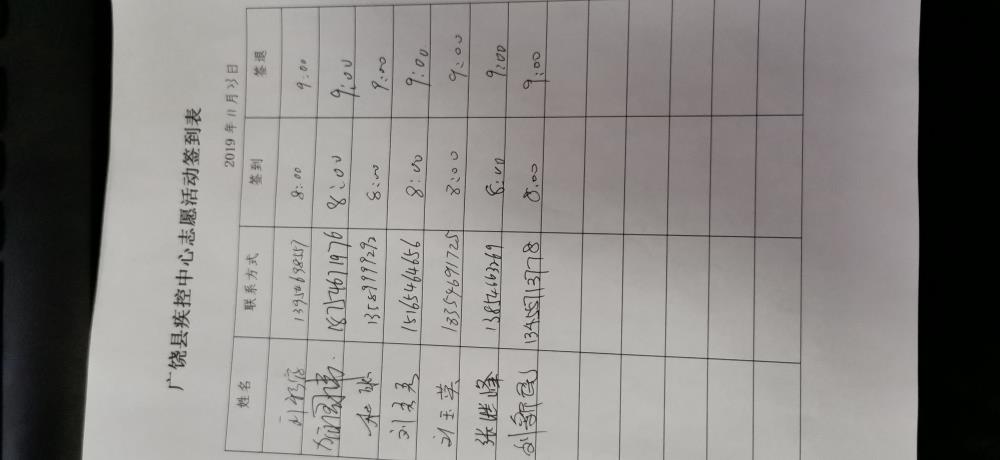 广饶县疾控中心志愿活动签到表
2019年11月23日
姓名 联系方式 签到 签退
8:00 9:00
18754671976 8:00 9:00
13589999292 8:00 9:00
15165464656 8:00 9:00
刘玉英 13354691725 8:00 9:00
张胜峰 13854663269 8:00 9:00
刘新民 13455713178 8:00 9:00